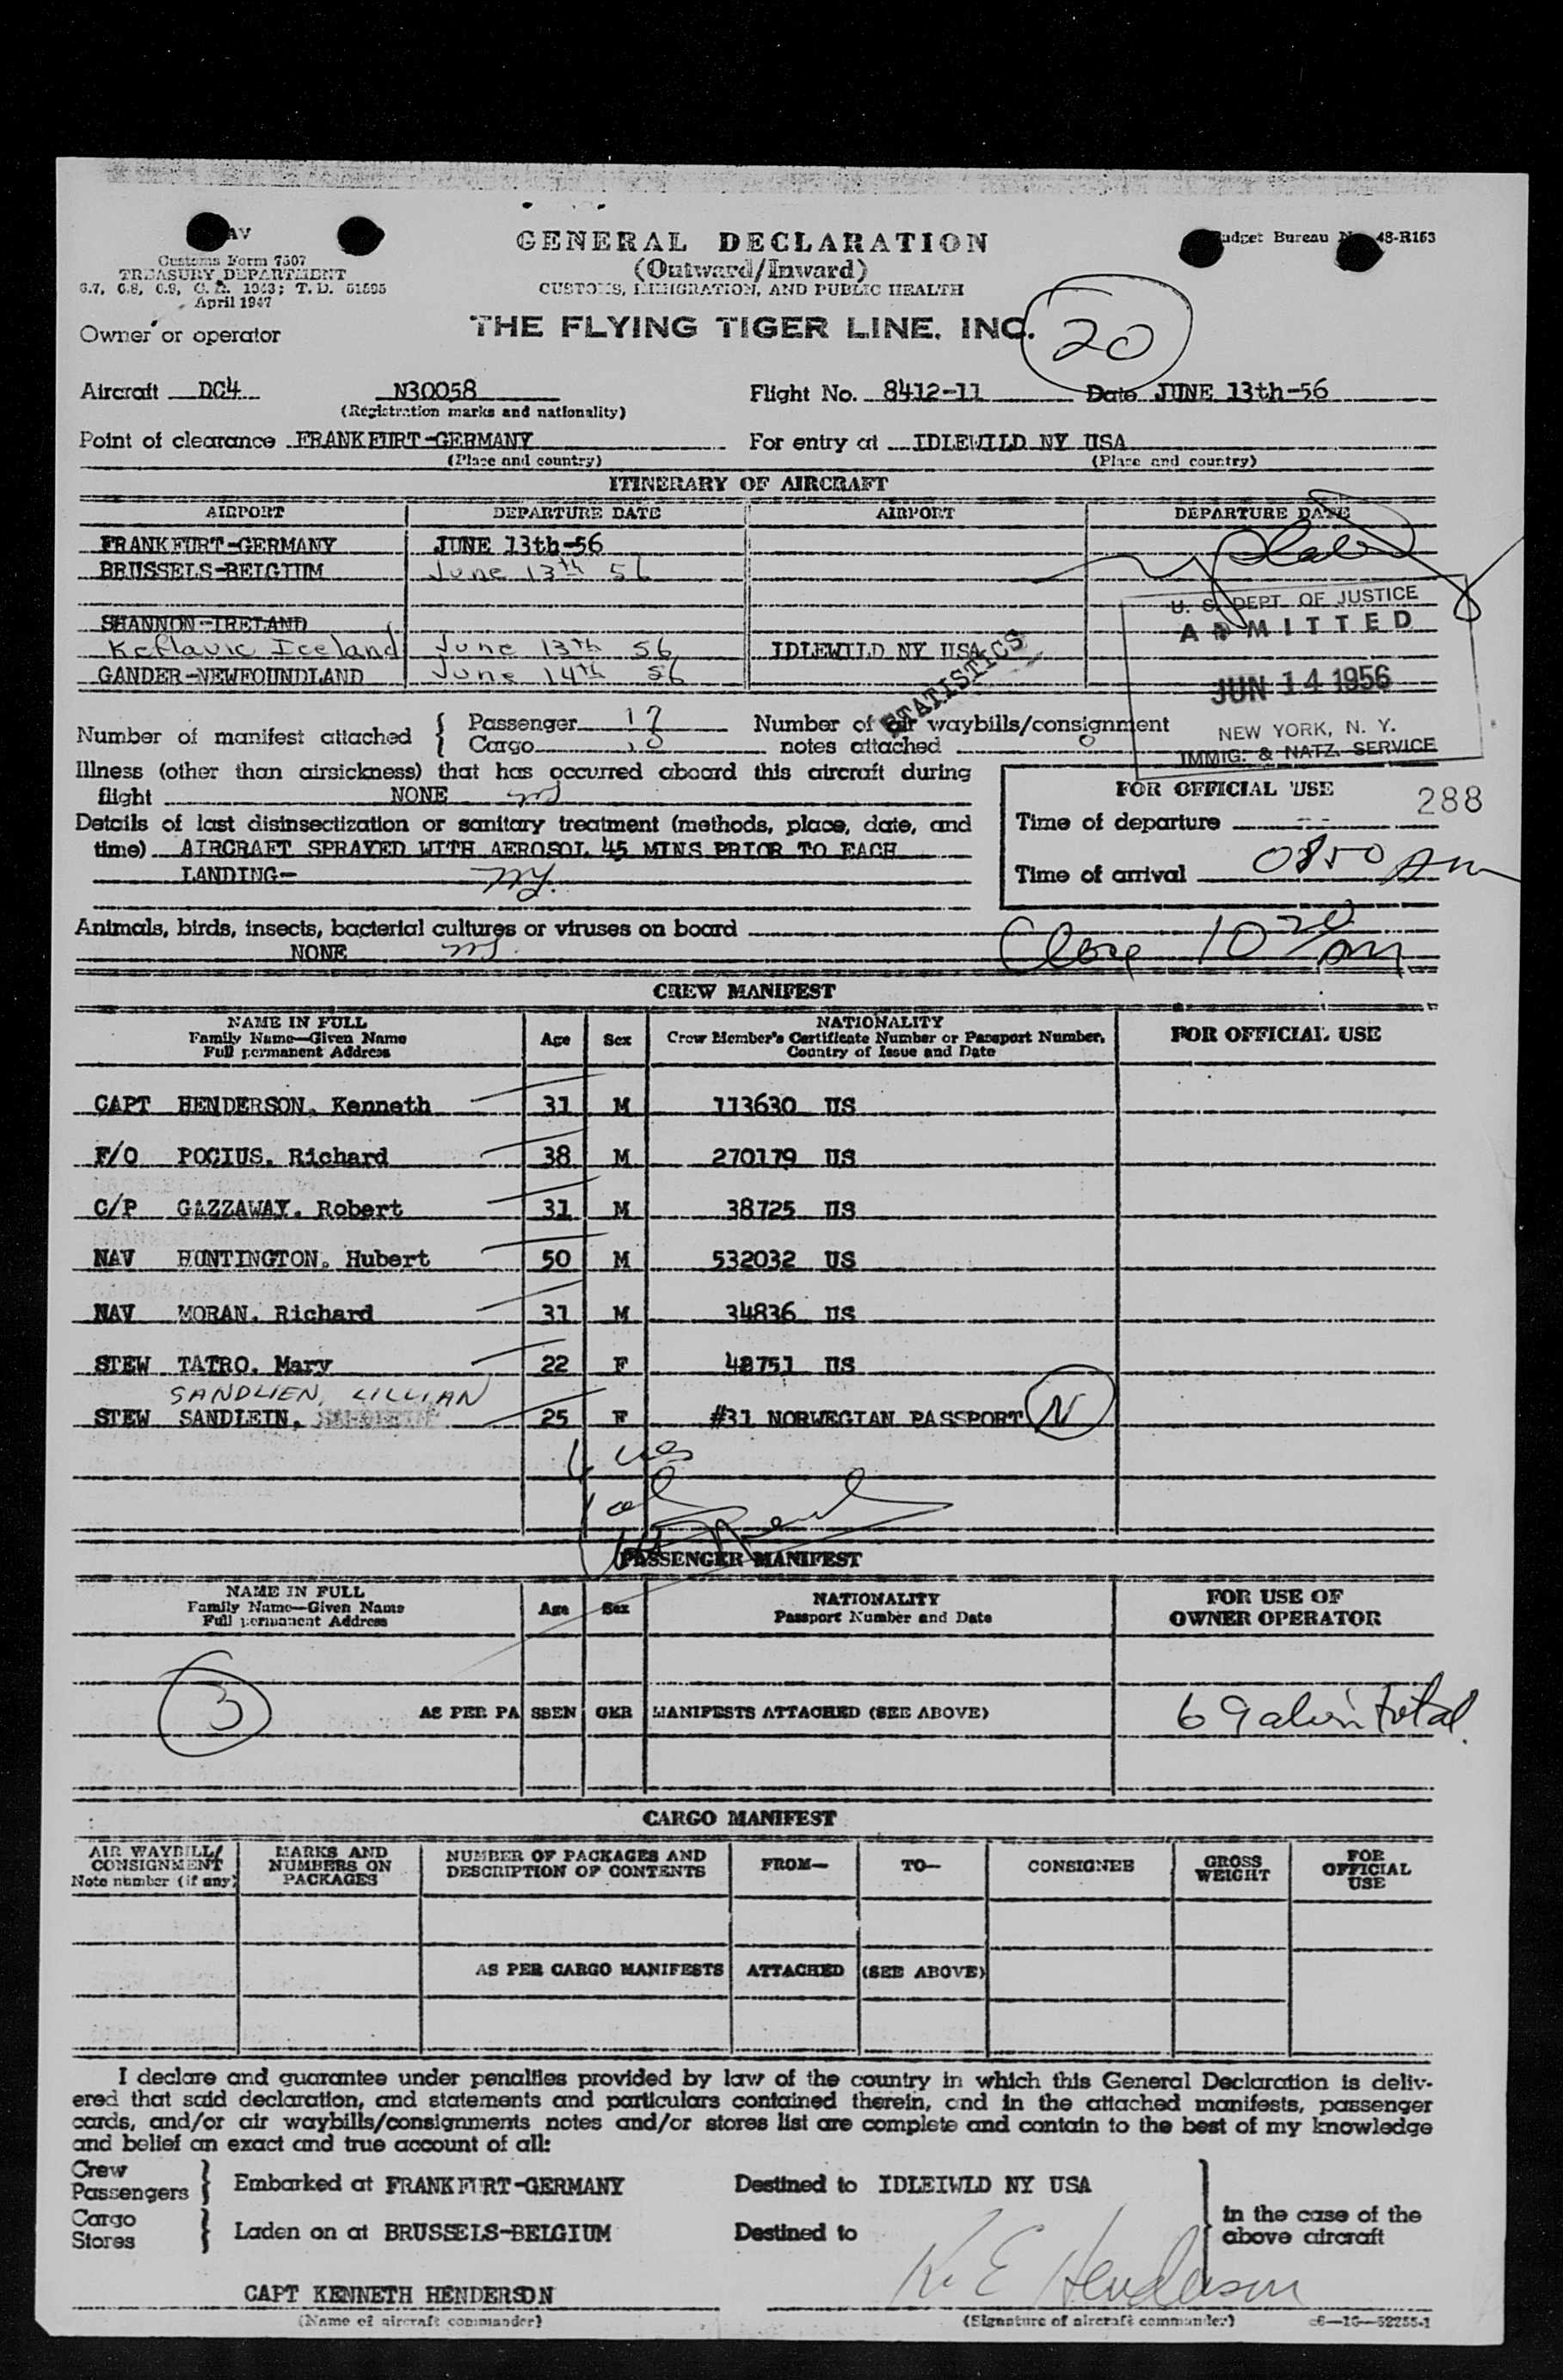 GENERAL DECLARATION
(Outward/Inward)
CUSTOMS, IMMIGRATION, AND PUBLIC HEALTH
Customs Form 7507
TREASURY DEPARTMENT
6.7, 6.8, 6.9, C.R. 1943; T.D. 51595
April 1947
Budget Bureau No. 48-R153
Owner or operator THE FLYING TIGER LINE. INC.
20
Aircraft DC4 N30058 Flight No. 8412-11 Date JUNE 13th-56
(Registration marks and nationality)
Point of clearance FRANKFURT-GERMANY For entry at IDLEWILD NY USA
(Place and country) (Place and country)
ITINERARY OF AIRCRAFT
AIRPORT DEPARTURE DATE AIRPORT DEPARTURE DATE
FRANKFURT-GERMANY JUNE 13th-56
BRUSSELS-BELGIUM June 13th 56
SHANNON-IRELAND
Keflavic Iceland June 13th 56 IDLEWILD NY USA
GANDER-NEWFOUNDLAND June 14th 56
STATISTICS
U. S. DEPT. OF JUSTICE
ADMITTED
JUN 14 1956
NEW YORK, N. Y.
IMMIG. & NATZ. SERVICE
Number of manifest attached { Passenger Number of air waybills/consignment
Cargo notes attached 0
Illness (other than airsickness) that has occurred aboard this aircraft during
flight NONE
Details of last disinsectization or sanitary treatment (methods, place, date, and
time) AIRCRAFT SPRAYED WITH AEROSOL 45 MINS PRIOR TO EACH
LANDING-
FOR OFFICIAL USE
288
Time of departure
Time of arrival 0850 Am
Animals, birds, insects, bacterial cultures or viruses on board
NONE
Close 10 20 Am
CREW MANIFEST
NAME IN FULL
Family Name—Given Name
Full permanent Address
Age Sex
NATIONALITY
Crew Member's Certificate Number or Passport Number,
Country of Issue and Date
FOR OFFICIAL USE
CAPT HENDERSON, Kenneth 31 M 113630 US
F/O POCIUS, Richard 38 M 270179 US
C/P GAZZAWAY, Robert 31 M 38725 US
NAV HUNTINGTON, Hubert 50 M 532032 US
NAV MORAN, Richard 31 M 34836 US
STEW TATRO, Mary 22 F 48751 US
SANDLIEN, LILLIAN
STEW SANDLEIN, 25 F #31 NORWEGIAN PASSPORT N
PASSENGER MANIFEST
NAME IN FULL
Family Name—Given Name
Full permanent Address
Age Sex
NATIONALITY
Passport Number and Date
FOR USE OF
OWNER OPERATOR
3
AS PER PASSENGER MANIFESTS ATTACHED (SEE ABOVE)
69 alien total
CARGO MANIFEST
AIR WAYBILL/
CONSIGNMENT
Note number (if any)
MARKS AND
NUMBERS ON
PACKAGES
NUMBER OF PACKAGES AND
DESCRIPTION OF CONTENTS
FROM— TO— CONSIGNEE
GROSS
WEIGHT
FOR
OFFICIAL
USE
AS PER CARGO MANIFESTS ATTACHED (SEE ABOVE)
I declare and guarantee under penalties provided by law of the country in which this General Declaration is deliv-
ered that said declaration, and statements and particulars contained therein, and in the attached manifests, passenger
cards, and/or air waybills/consignments notes and/or stores list are complete and contain to the best of my knowledge
and belief an exact and true account of all:
Crew
Passengers } Embarked at FRANKFURT-GERMANY Destined to IDLEIWLD NY USA
Cargo
Stores } Laden on at BRUSSELS-BELGIUM Destined to
in the case of the
above aircraft
CAPT KENNETH HENDERSON K. E Henderson
(Name of aircraft commander) (Signature of aircraft commander) c6—16—52255-1